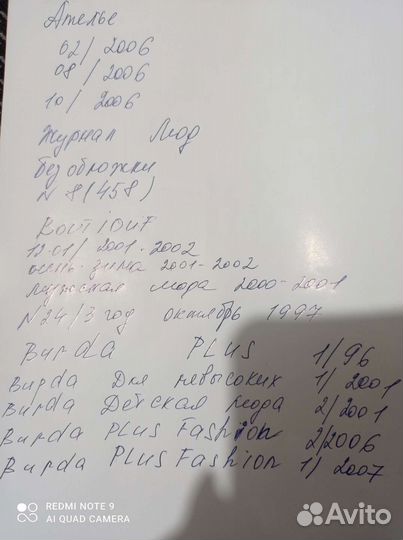 Ателье
02/2006
08/2006
10/2006
Журнал Мод
без обложки
N 8(458)
12.01/2001.2002
осень-зима 2001-2002
мужская мода 2000-2001
N24/3 год октябрь 1997
Burda PLUS 1/96
Burda Для невысоких 1/2001
Burda Детская мода 2/2001
Burda PLUS Fashion 2/2006
Burda PLUS Fashion 1/2007
REDMI NOTE 9
AI QUAD CAMERA
Avito